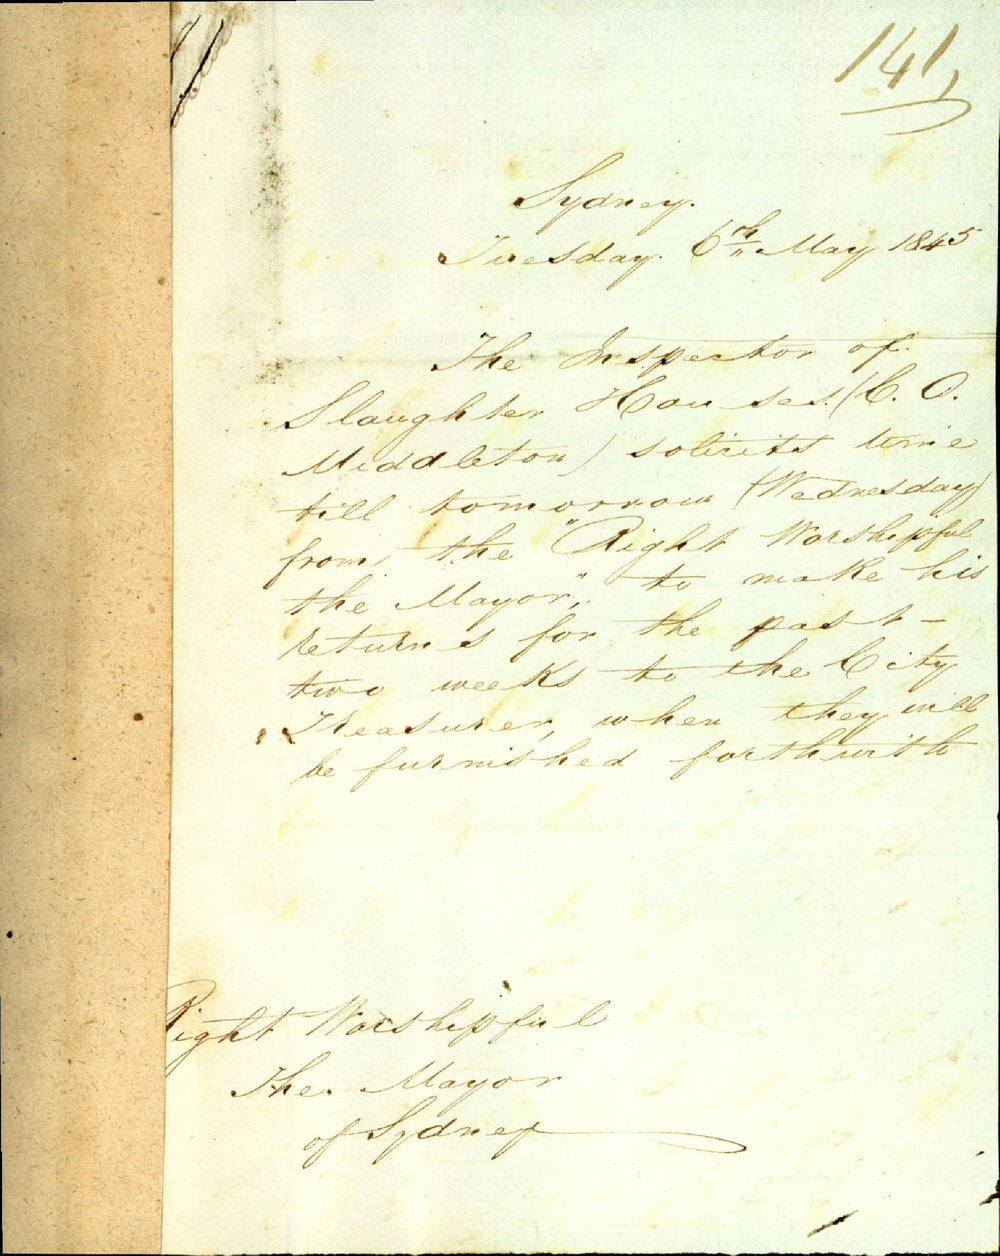 141
Sydney.
Tuesday. 6th May 1845
The Inspector of
Slaughter Houses. (C. O.
Middleton) solicits time
till tomorrow (Wednesday)
from the "Right Worshipful
the Mayor", to make his
returns for the past-
two weeks to the City
Treasurer, when they will
be furnished forthwith
Right Worshipful
The Mayor
of Sydney